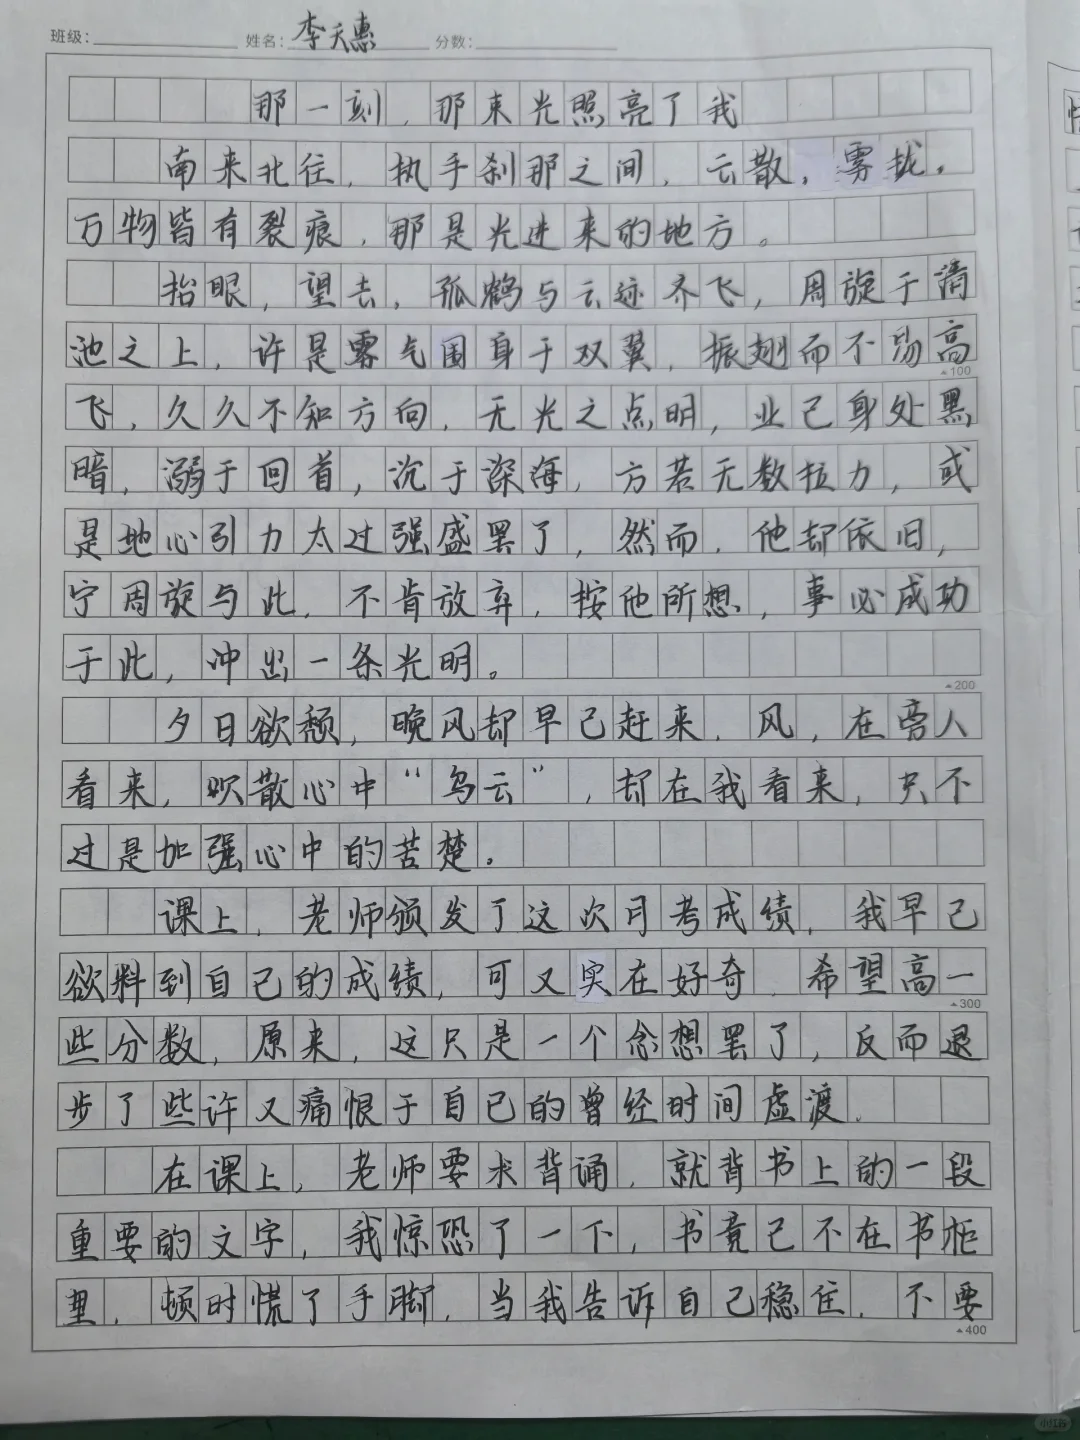 班级： 姓名：李天惠 分数：
那一刻，那束光照亮了我
南来北往，执手刹那之间，云散，雾拢。
万物皆有裂痕，那是光进来的地方。
抬眼，望去，孤鹤与云迹齐飞，周旋于清
池之上，许是雾气围身于双翼，振翅而不易高
100
飞，久久不知方向，无光之点明，业已身处黑
暗，溺于回首，沉于深海，方若无数拉力，或
是地心引力太过强盛罢了，然而，他却依旧，
宁周旋与此，不肯放弃，按他所想，事必成功
于此，冲出一条光明。
200
夕日欲颓，晚风却早已赶来，风，在旁人
看来，吹散心中“乌云”，却在我看来，只不
过是加强心中的苦楚。
课上，老师颁发了这次月考成绩，我早已
欲料到自己的成绩，可又实在好奇，希望高一
300
些分数，原来，这只是一个念想罢了，反而退
步了些许又痛恨于自己的曾经时间虚渡。
在课上，老师要求背诵，就背书上的一段
重要的文字，我惊恐了一下，书竟已不在书柜
里，顿时慌了手脚，当我告诉自己稳住，不要
400
小红书